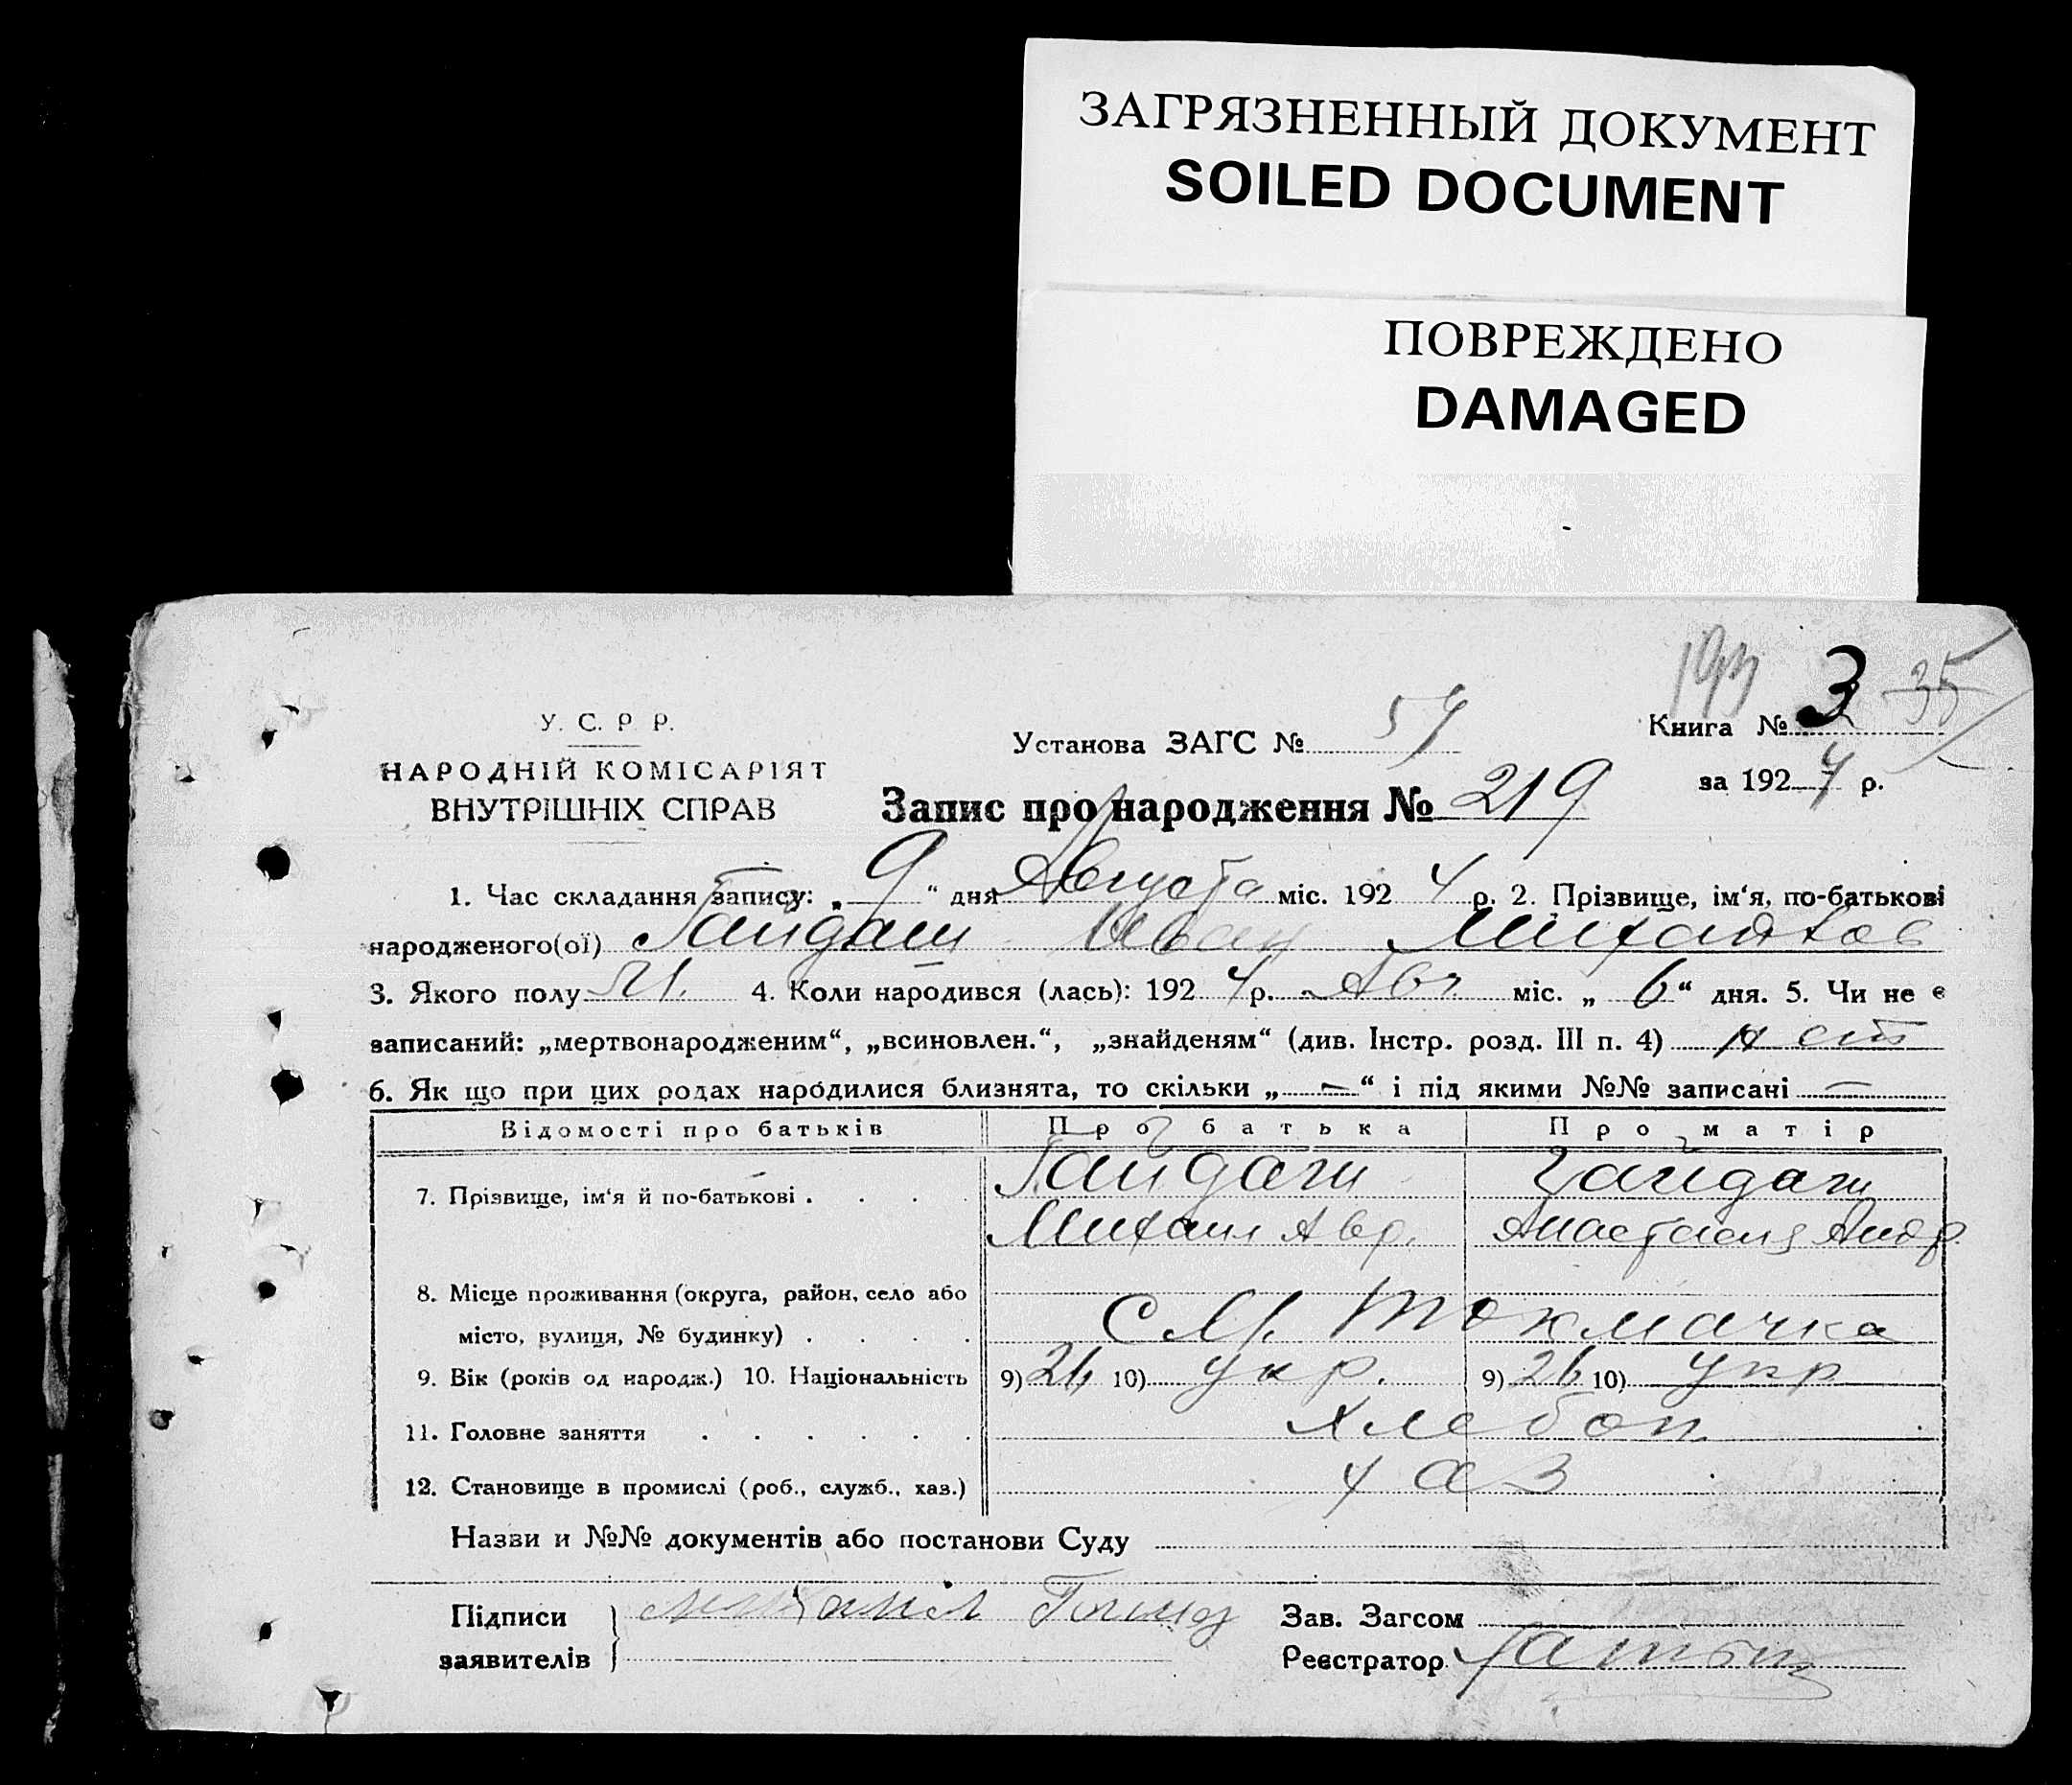 ЗАГРЯЗНЕННЫЙ ДОКУМЕНТ
SOILED DOCUMENT
ПОВРЕЖДЕНО
DAMAGED
193 3 35
У. С. Р Р.
Установа ЗАГС № 54
Книга №
НАРОДНІЙ КОМІСАРІЯТ
ВНУТРІШНІХ СПРАВ
за 1924 р.
Запис про народження № 219
1. Час складання запису: „ 9 “ дня Августа міс. 1924 р. 2. Прізвище, ім‘я, по-батькові
народженого(ої) Гайдаш Иван Михайлов
3. Якого полу М. 4. Коли народився (лась): 1924 р. Авг. міс. „ 6 “ дня. 5. Чи не є
записаний: „мертвонародженим“, „всиновлен.“, „знайденям“ (див. Інстр. розд. III п. 4) нет
6. Як що при цих родах народилися близнята, то скільки „ — “ і під якими №№ записані —
Відомості про батьків Про батька Про матір
7. Прізвище, ім‘я й по-батькові . . . . Гайдаш Гайдаш
Михаил Авр. Анастасия Андр.
8. Місце проживання (округа, район, село або
місто, вулиця, № будинку) . . . . С М. Токмачка
9. Вік (років од народж.) 10. Національність 9) 26 10) укр. 9) 26 10) укр
11. Головне заняття . . . . . . Хлебоп.
12. Становище в промислі (роб., служб., хаз.) хаз
Назви и №№ документів або постанови Суду
Підписи заявителів Михаил
Зав. Загсом
Реєстратор